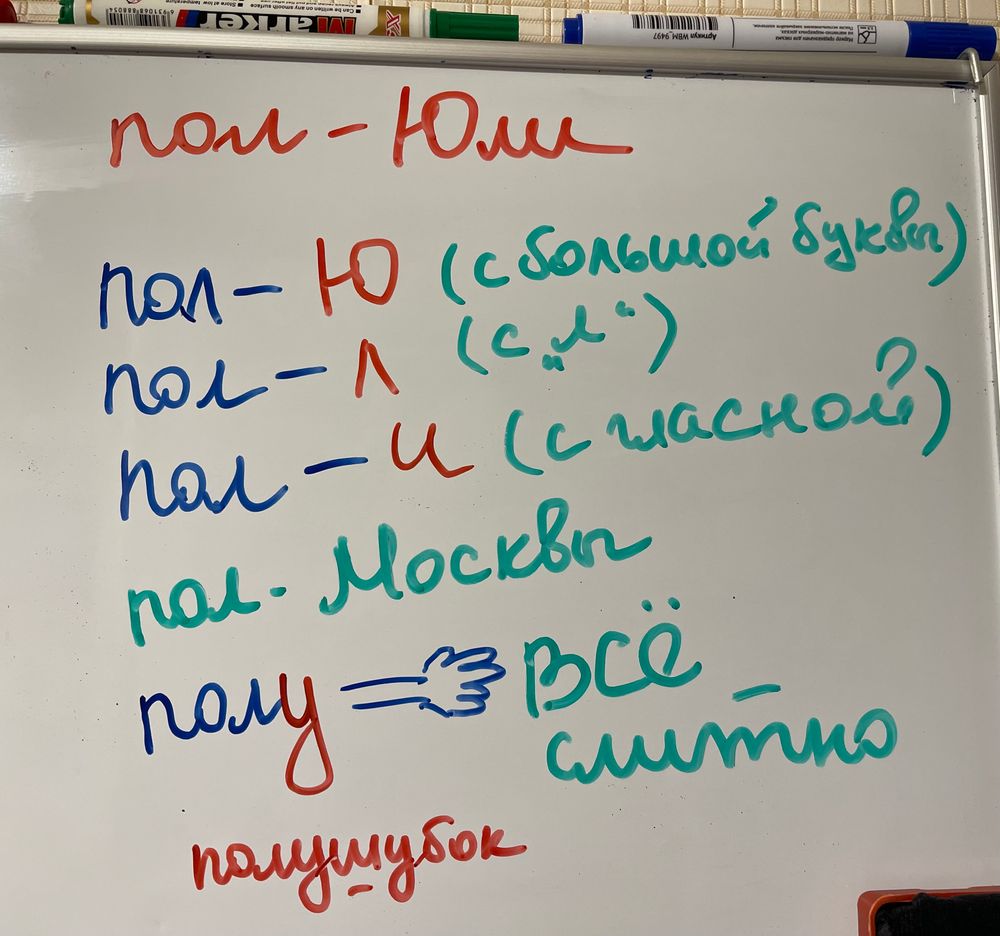 Marker
Артикул WBM_9497
пол-Юли
пол-Ю (с большой буквы)
пол-л (с „л“)
пол-и (с гласной)
пол-Москвы
полу Всё
слитно
полушубок